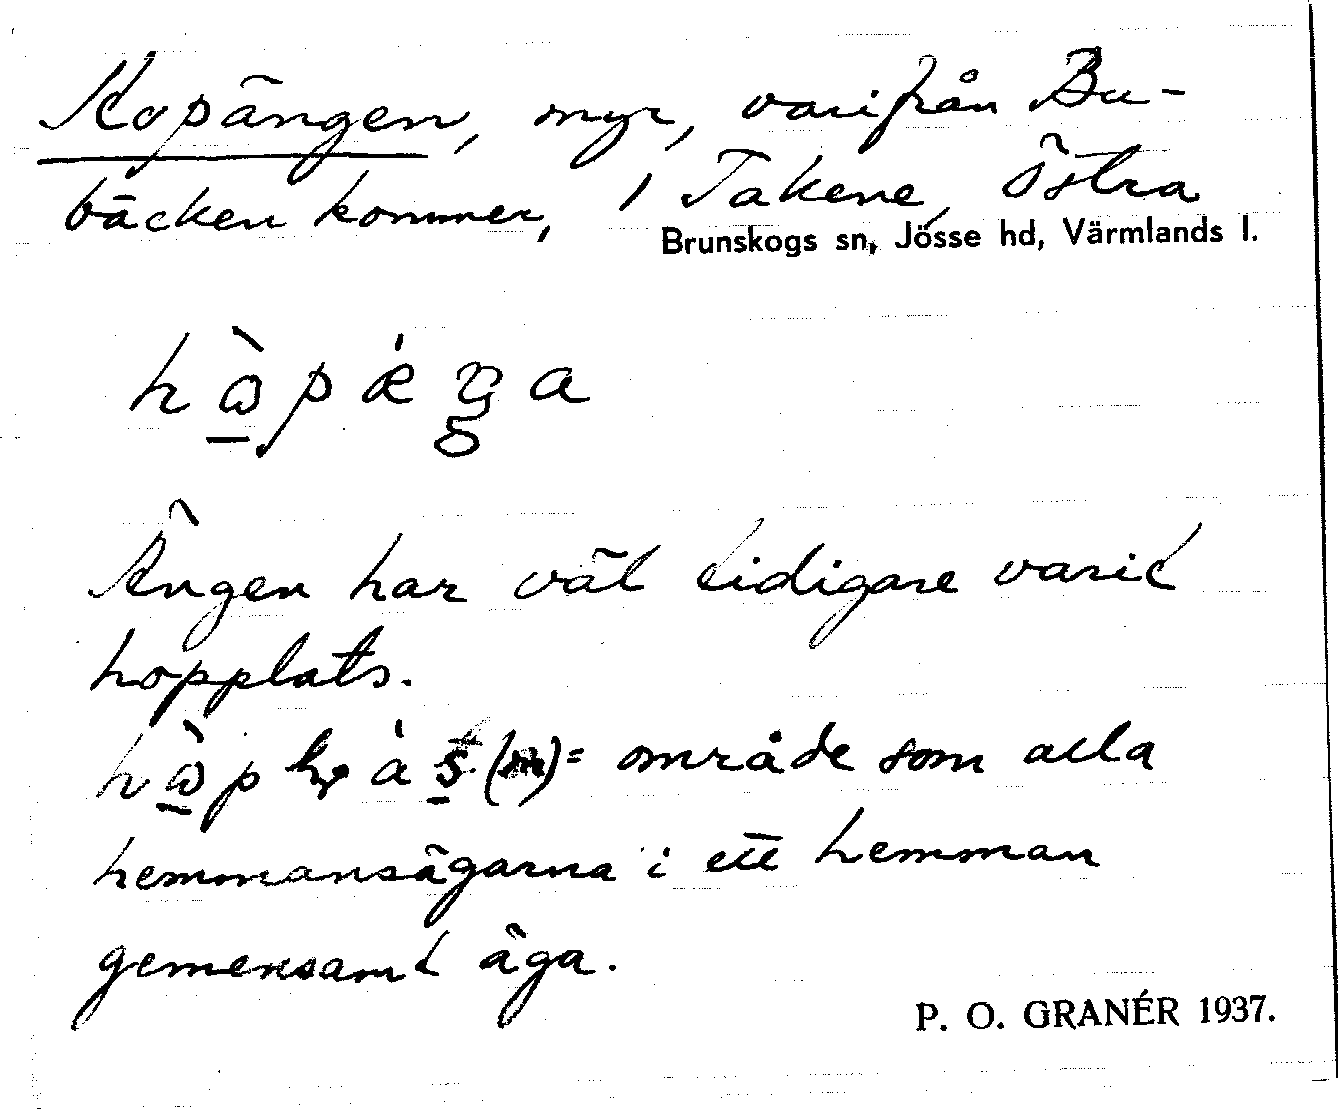 Hopängen, myr, varifrån Bu-
bäcken kommer, 1 Takene, Östra
Brunskogs sn, Jösse hd, Värmlands l.
Ängen har väl tidigare varit
hopplats.
= område som alla
hemmansägarna i ett hemman
gemensamt äga.
P. O. GRANÉR 1937.